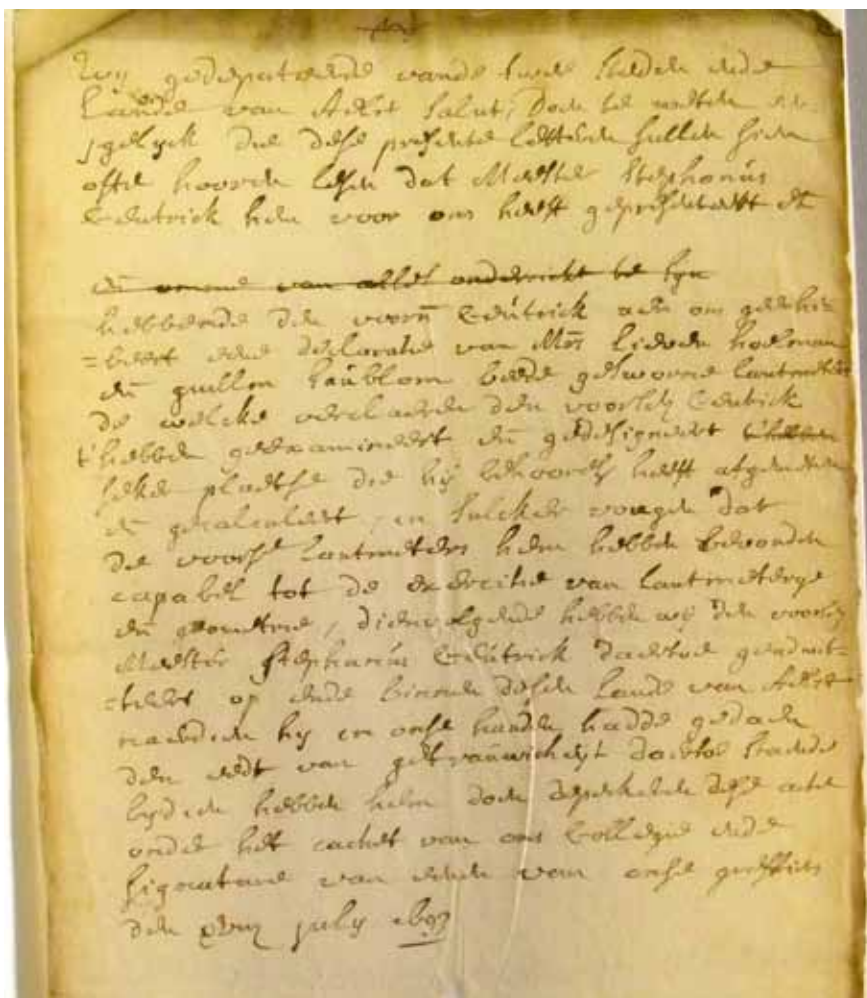 Wy gedeputeerde vande twee steden ende
Lande van Aelst Salut, Doen te weten een
jgelyck die dese presente letteren sullen sien
ofte hooren lesen dat Meester Stephanus
Ceutrick hem voor ons heeft gepresenteert en̄
en̄ omme van alles onderricht te syn
hebbende den voorn̄ Ceútrick aen ons geexhi=
=beert eene declaratie van Mr̄s Lieven hoelman
en̄ guill̄m beede geswoorne Lantmeters
de welcke verclaeren den voorsch Ceutrick
t'hebben geexamineert en̄ gedesigneert t'hebben
seker plaetse die hy behoorel heeft afgemeten
en̄ gecalculeert, in sulcker voegen dat
de voorse Lantmeters hem hebben bevonden
capabel tot de exercitie van Lantmeterye
en̄ geometrie, dienvolgende hebben wy den voorsch
Meester Stephanus Ceútrick daertoe geadmit=
=teert op ende binnen desen Lande van Aelst
naerdien hy in onse handen hadde gedaen
den eedt van getrauwicheyt daertoe staende
bydien hebben hem doen depescheren dese acte
onder het cachet van ons Collegie ende
signature van eenen van onse greffiers
den july